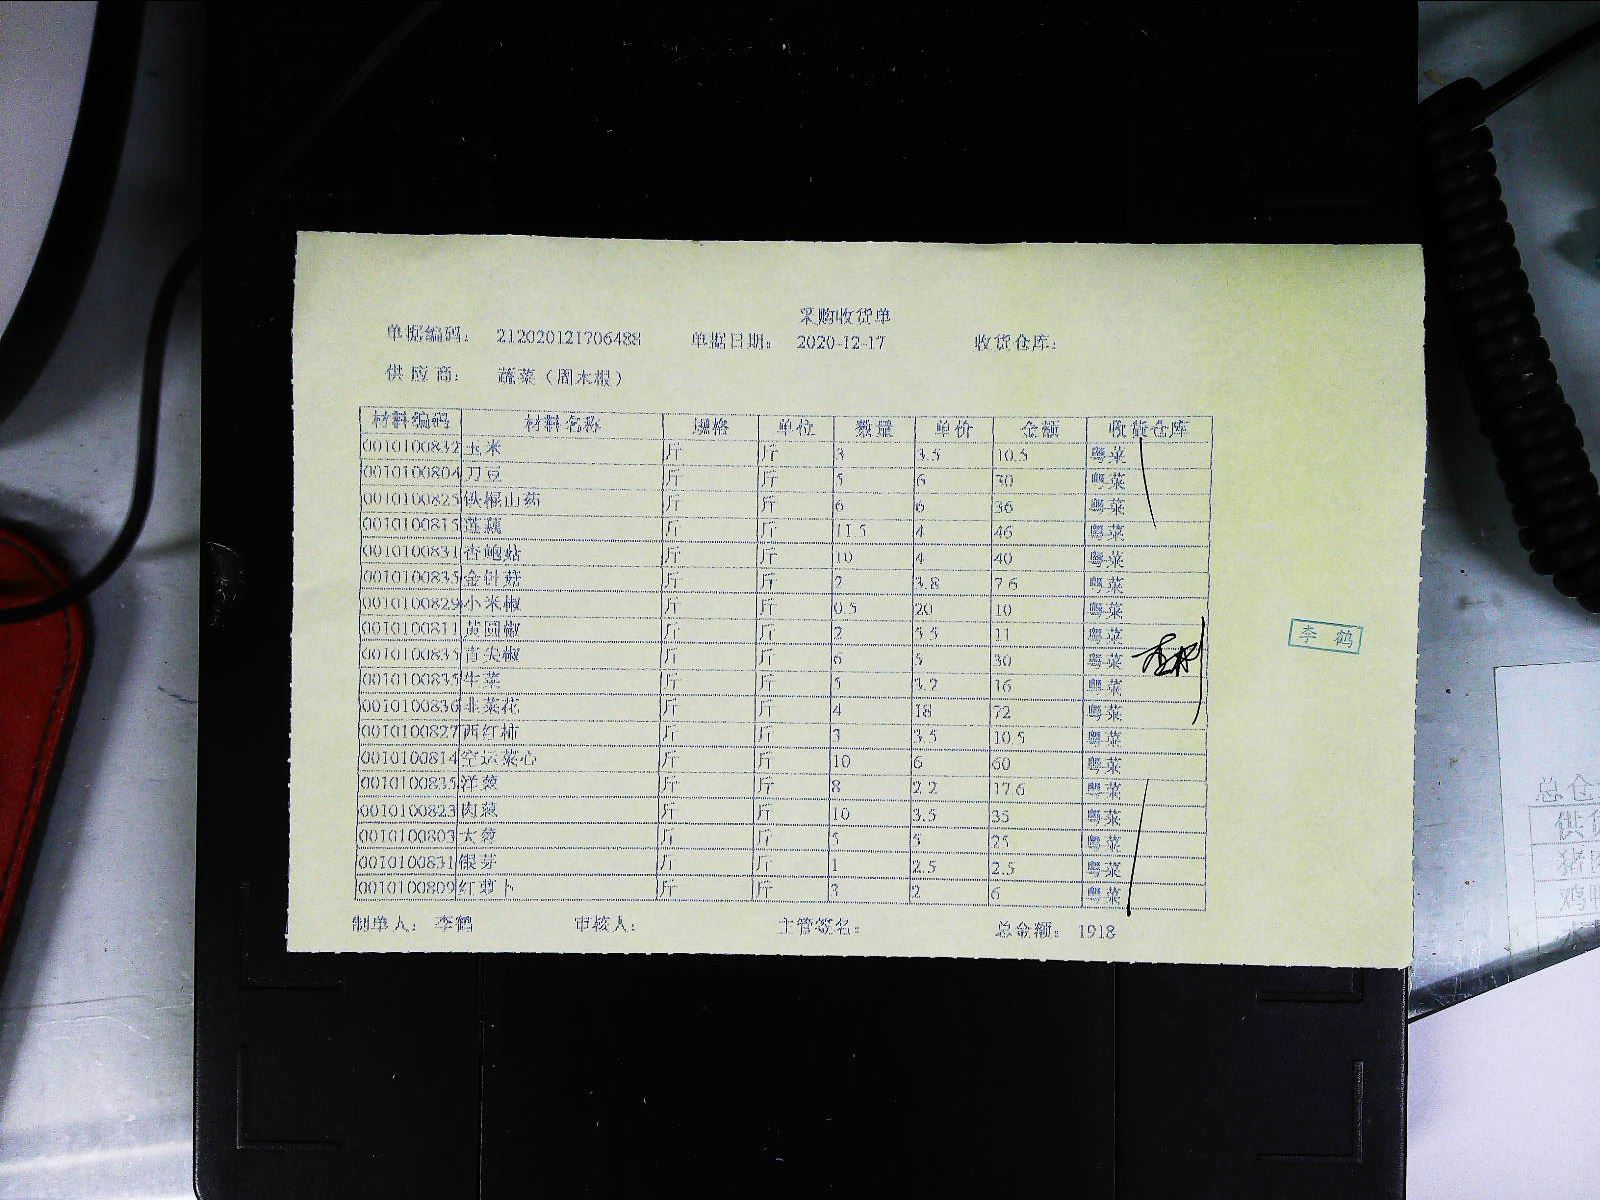 采购收货单
单据编码: 212020121706488 单据日期: 2020-12-17 收货仓库:
供应商: 蔬菜(周木根)
材料编码 材料名称 规格 单位 数量 单价 金额 收货仓库
0010100832 玉米 斤 斤 3 3.5 10.5 粤菜
0010100804 刀豆 斤 斤 5 6 30 粤菜
0010100825 铁棍山药 斤 斤 6 6 36 粤菜
0010100815 莲藕 斤 斤 11.5 4 46 粤菜
0010100831 香鲍菇 斤 斤 10 4 40 粤菜
0010100835 金针菇 斤 斤 2 3.8 7.6 粤菜
0010100829 小米椒 斤 斤 0.5 20 10 粤菜
0010100811 黄圆椒 斤 斤 2 5.5 11 粤菜
0010100835 青尖椒 斤 斤 6 5 30 粤菜
0010100835 生菜 斤 斤 5 3.2 16 粤菜
0010100836 韭菜花 斤 斤 4 18 72 粤菜
0010100827 西红柿 斤 斤 3 3.5 10.5 粤菜
0010100814 空运菜心 斤 斤 10 6 60 粤菜
0010100835 洋葱 斤 斤 8 2.2 17.6 粤菜
0010100823 肉葱 斤 斤 10 3.5 35 粤菜
0010100803 大蓉 斤 斤 5 5 25 粤菜
0010100831 银芽 斤 斤 1 2.5 2.5 粤菜
0010100809 红萝卜 斤 斤 3 2 6 粤菜
制单人: 李鹤 审核人: 主管签名: 总金额: 1918
李鹤
总仓
供货
猪肉
鸡鸭